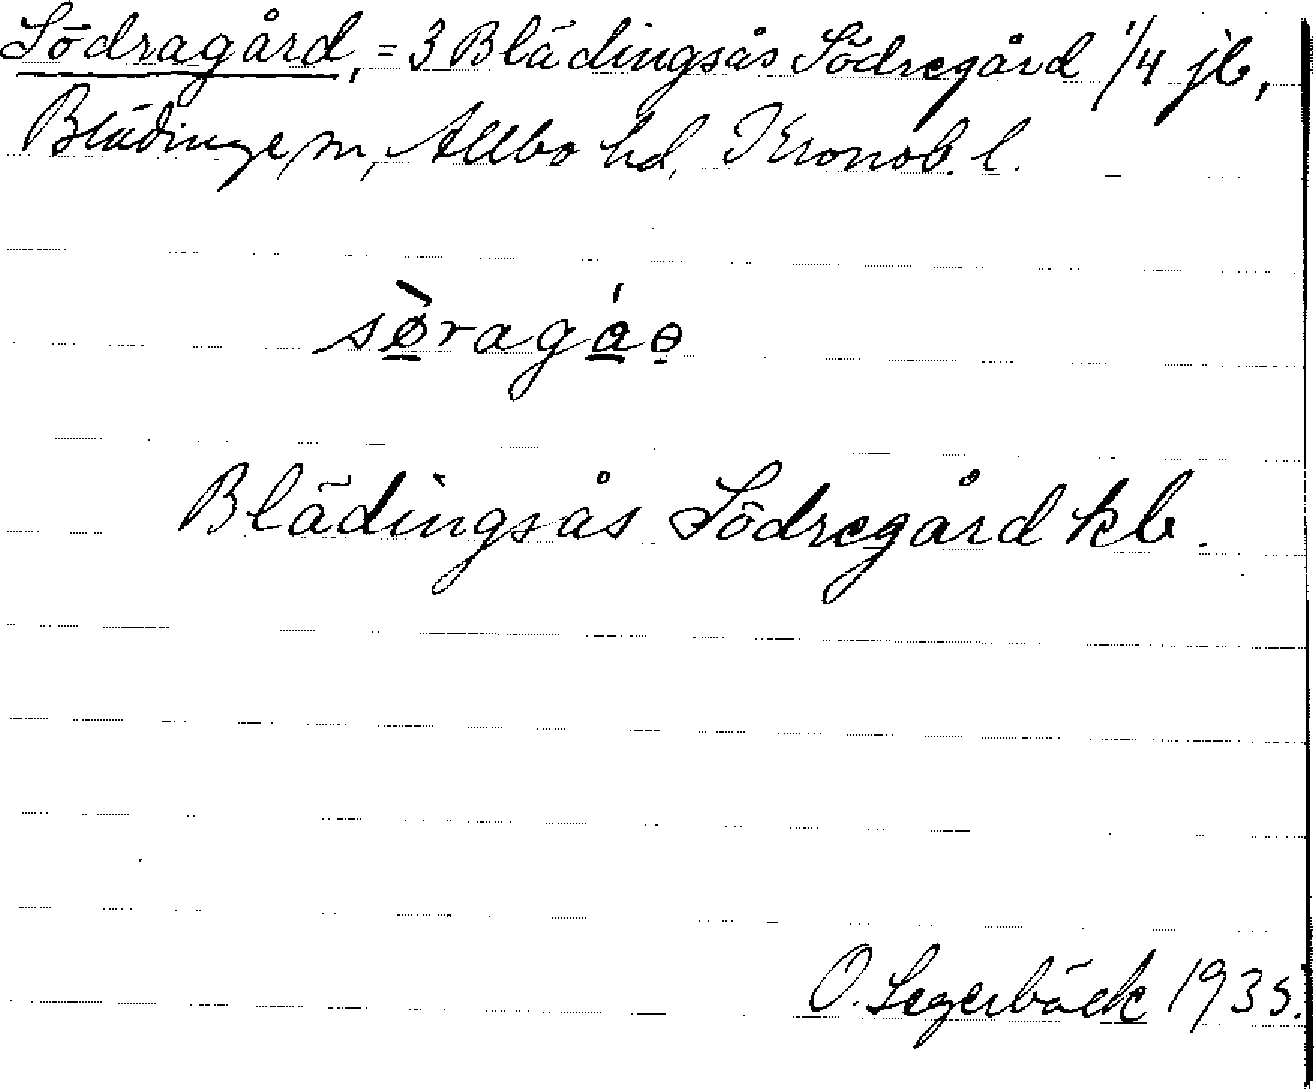 Södragård, = 3 Blädingsås Södregård 1/4 jb,
Blädinge sn, Allbo hd, Kronob. l.
sø̠̀ragá̠ə̣
Blädingsås Södregård kb.
O. Segerbäck 1935.